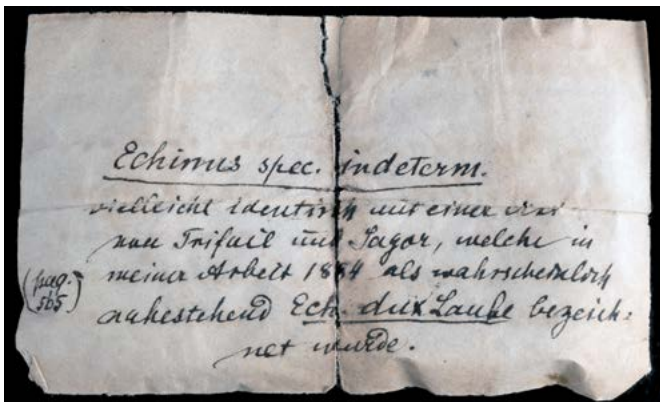 Echinus spec. indeterm.
vielleicht identisch mit einer Art
von Trifail und Sagor, welche in
meiner Arbeit 1884 als wahrscheinlich
(pag. 565)
nahestehend Ech. dux Laube bezeich=
net wurde.